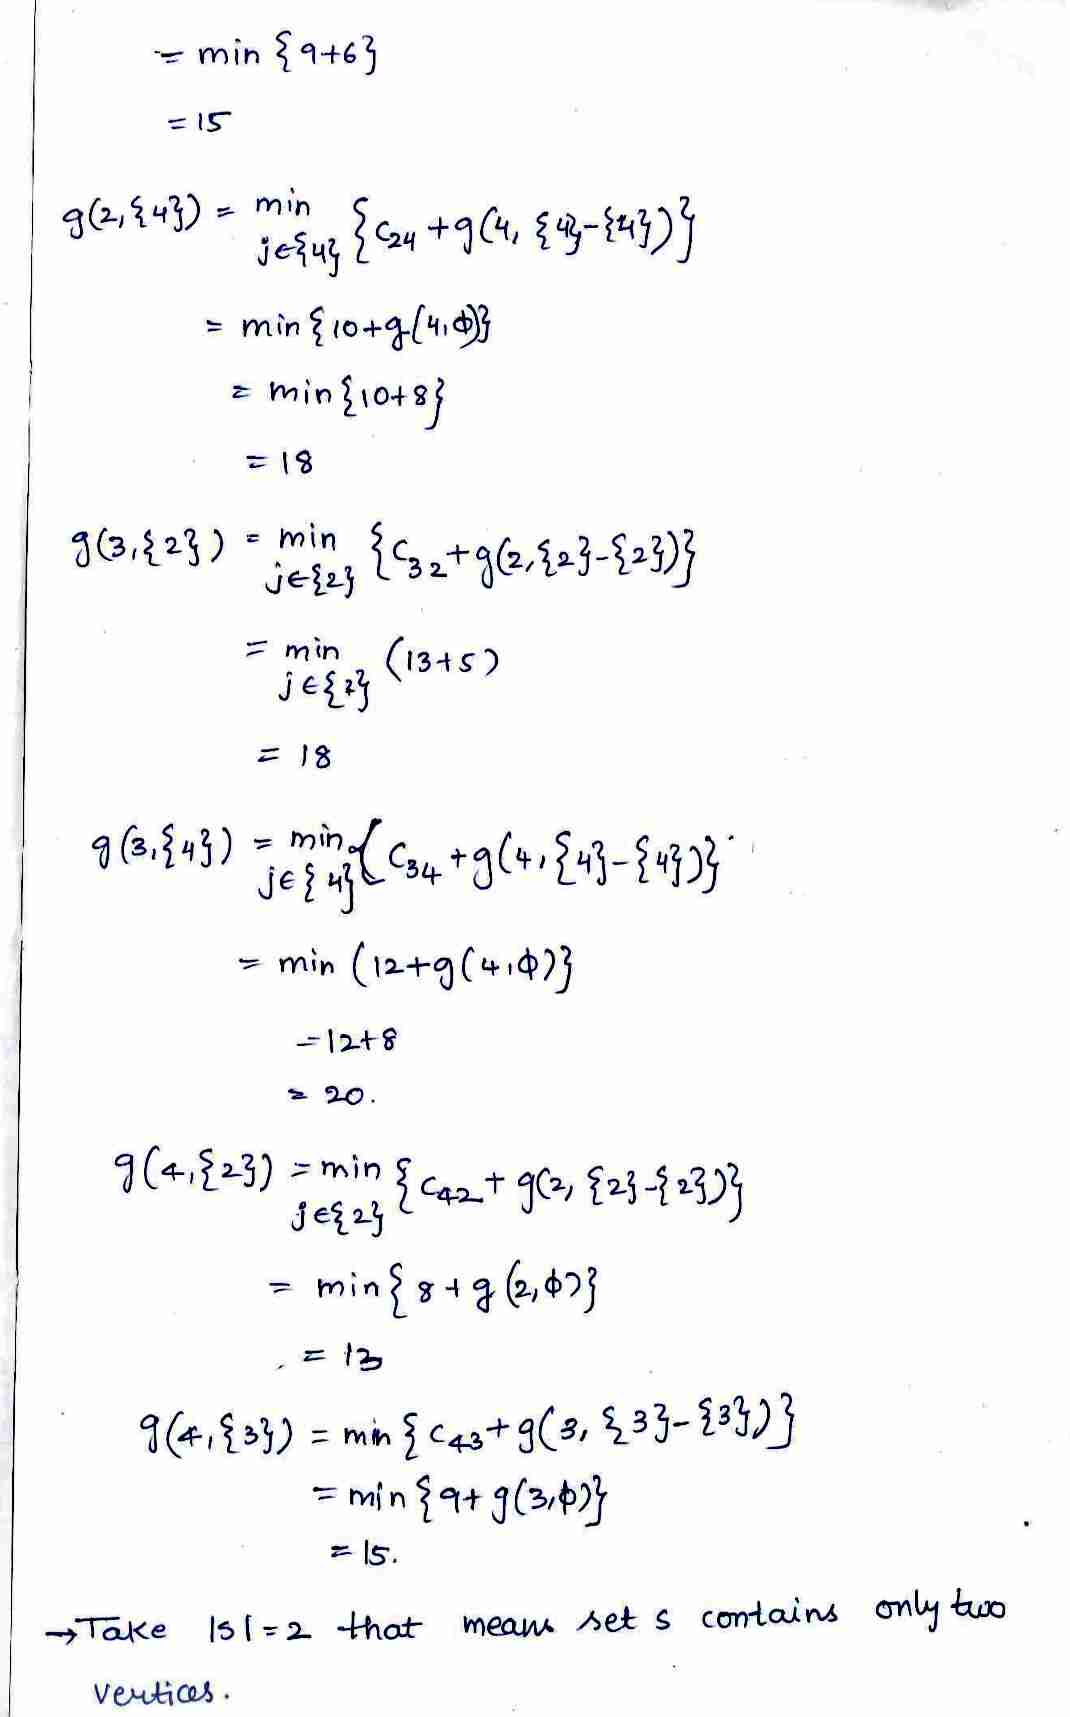 = min {9+6}
= 15
g(2,{4}) = min {C24 + g(4, {4}-{4})}
j∈{4}
= min {10+g(4,φ)}
= min {10+8}
= 18
g(3,{2}) = min {C32 + g(2,{2}-{2})}
j∈{2}
= min (13+5)
j∈{2}
= 18
g(3,{4}) = min {C34 + g(4,{4}-{4})}
j∈{4}
= min (12+g(4,φ)}
=12+8
= 20.
g(4,{2}) = min {C42 + g(2, {2}-{2})}
j∈{2}
= min{ 8 + g(2,φ)}
= 13
g(4,{3}) = min { C43 + g(3, {3}-{3})}
= min {9+ g(3,φ)}
= 15.
→ Take |S|=2 that means set s contains only two
vertices.